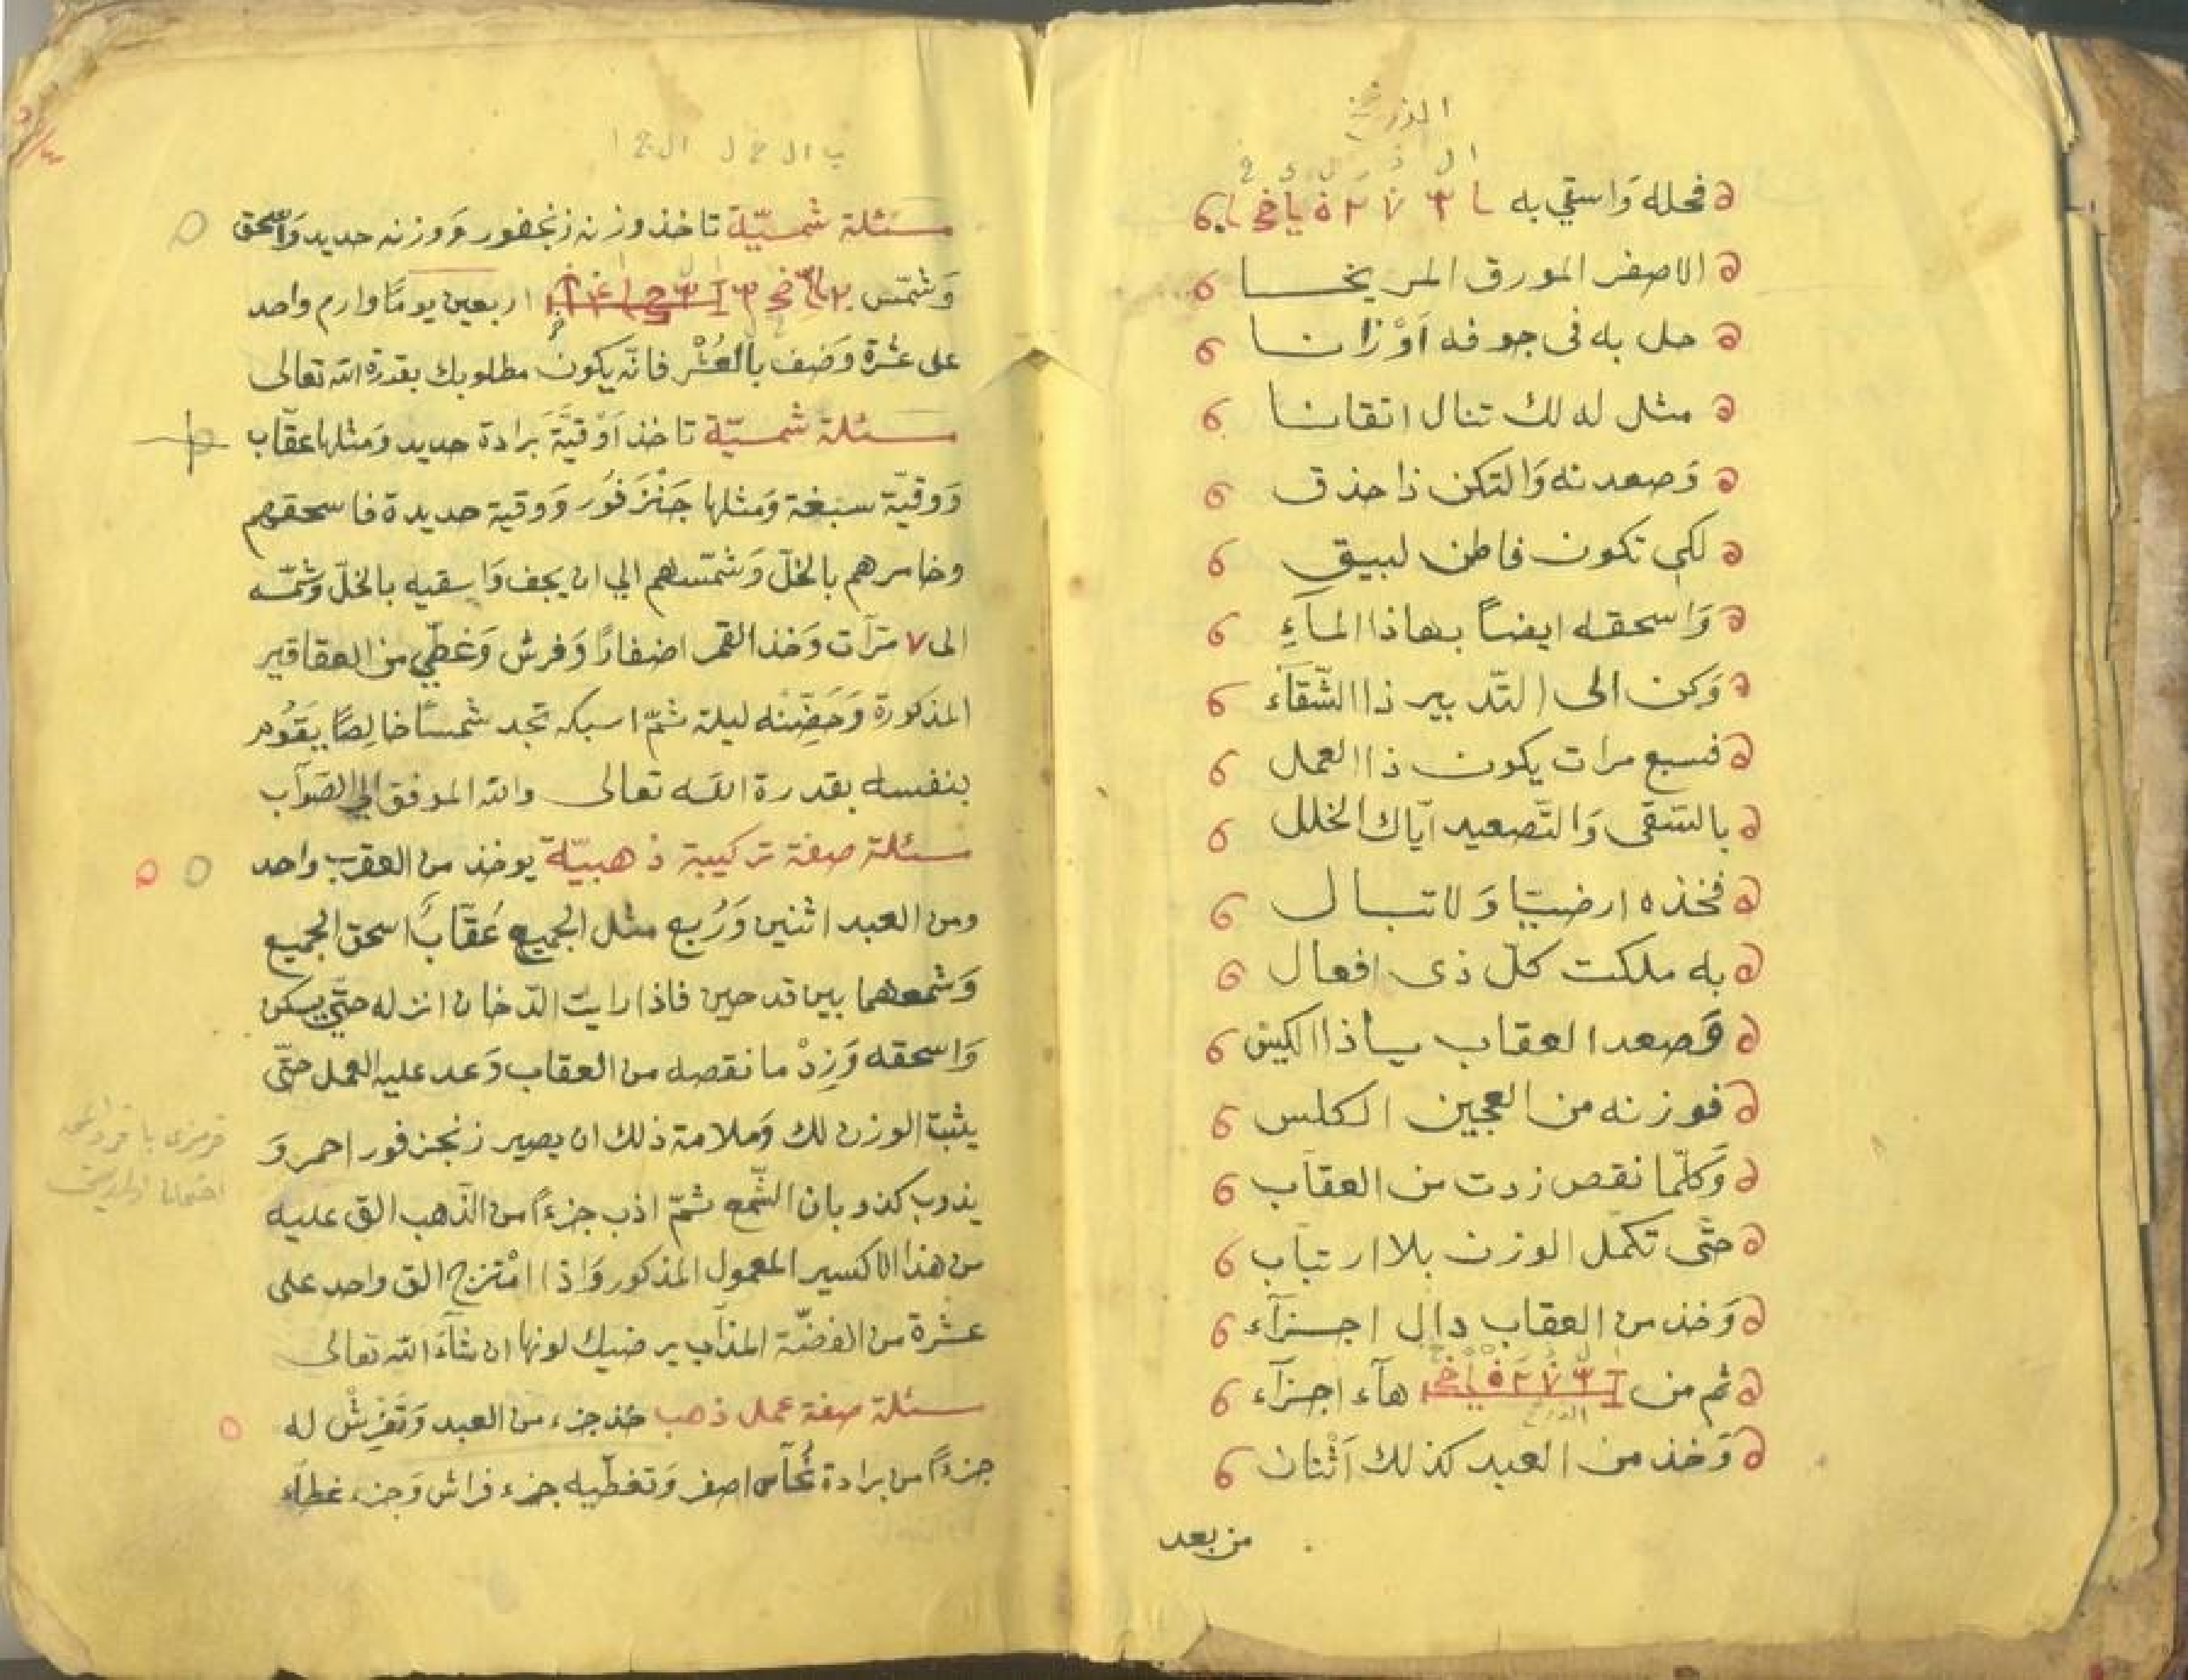 الزرنيخ
ا ل ز ر ن ي خ
فحله واستي به
الاصفر المورق المريخا
حل به في جوفه اَوْزانا
مثل له لك تنال اتقانا
وَصعدنه وَالتكن ذا حذق
لكي تكون فاطن لبيق
وَاسحقه ايضاً بهاذا المآءِ
وَكن الى التّدبير ذا الشّقآء
فسبع مرات يكون ذا العمل
بالسّقى وَالتّصعيد ايّاك الخلل
فخذه ارضيّا وَلاتبال
به ملكت كلّ ذى افعال
وَصعد العقاب ياذا الكيس
فوزنه من العجين الكلس
وَكلّما نقص زدت من العقاب
حتّى تكمّل الوزن بلا ارتياب
وَخذ من العقاب دال اجزآء
ثم من هآء اجزآء
وَخذ من العبد كذلك اَثْنان
من بعد
ب ال خ ل ال
مسئلة شمسيّة تاخذ وزنه زنجفور وَوزنه حديد وَاسحق
وَشمّس اربعين يومًا وارم واحد
على عشرة وَضف بالعُشْر فانّه يكون مطلوبك بقدرة الله تعالى
مسئلة شمسيّة تاخذ اَوْقيَّة بَرادة حديد وَمثلها عقّاب
وَوقيّة سبغة وَمثلها جَنْزَفُوَر وَوقية حديدة فاسحقهم
وخامرهم بالخلّ وَشمّسهم الي ان يجف وَاسقيه بالخلّ وَشمّسه
الى ٧ مرّات وَخذ القمر اضفارًا وَفرش وَغطّي من العقاقير
المذكورة وَحَضِّنْه ليلة ثمّ اسبكه تجد شمسًا خالِصًا يَقَوُم
بنفسه بقدرة الله تعالى والله الموفق الي الصّوآب
مسئلة صفة تركيبة ذهبيّة يوخذ من العقرب واحد
ومن العبد اثنين وَرُبع مثل الجميع عُقّابًَ اسحق الجميع
وَشمعهما بين قدحين فاذا رايت الدّخان انزله حتّى يسكن
وَاسحقه وَزِدْ ما نقصه من العقاب وَعد عليه العمل حتّى
يثبت الوزن لك وَملامة ذلك ان يصير زنجزفور احمر وَ
يذوب كذوبان الشّمع ثمّ اذب جزءًا من الذّهب الق عليه
من هذا الاكسير المعمول المذكور وَاذا امْتزج الق واحد على
عشرة من الفضّة المذآب يرضيك لونها ان شآء الله تعالى
مسئلة صفة عمل ذهب خذ جزء من العبد وَتَفْرِشْ له
جزءًا من برادة نُحآس اصفر وَتغطّيه جزء فراش وَجزء غطآء